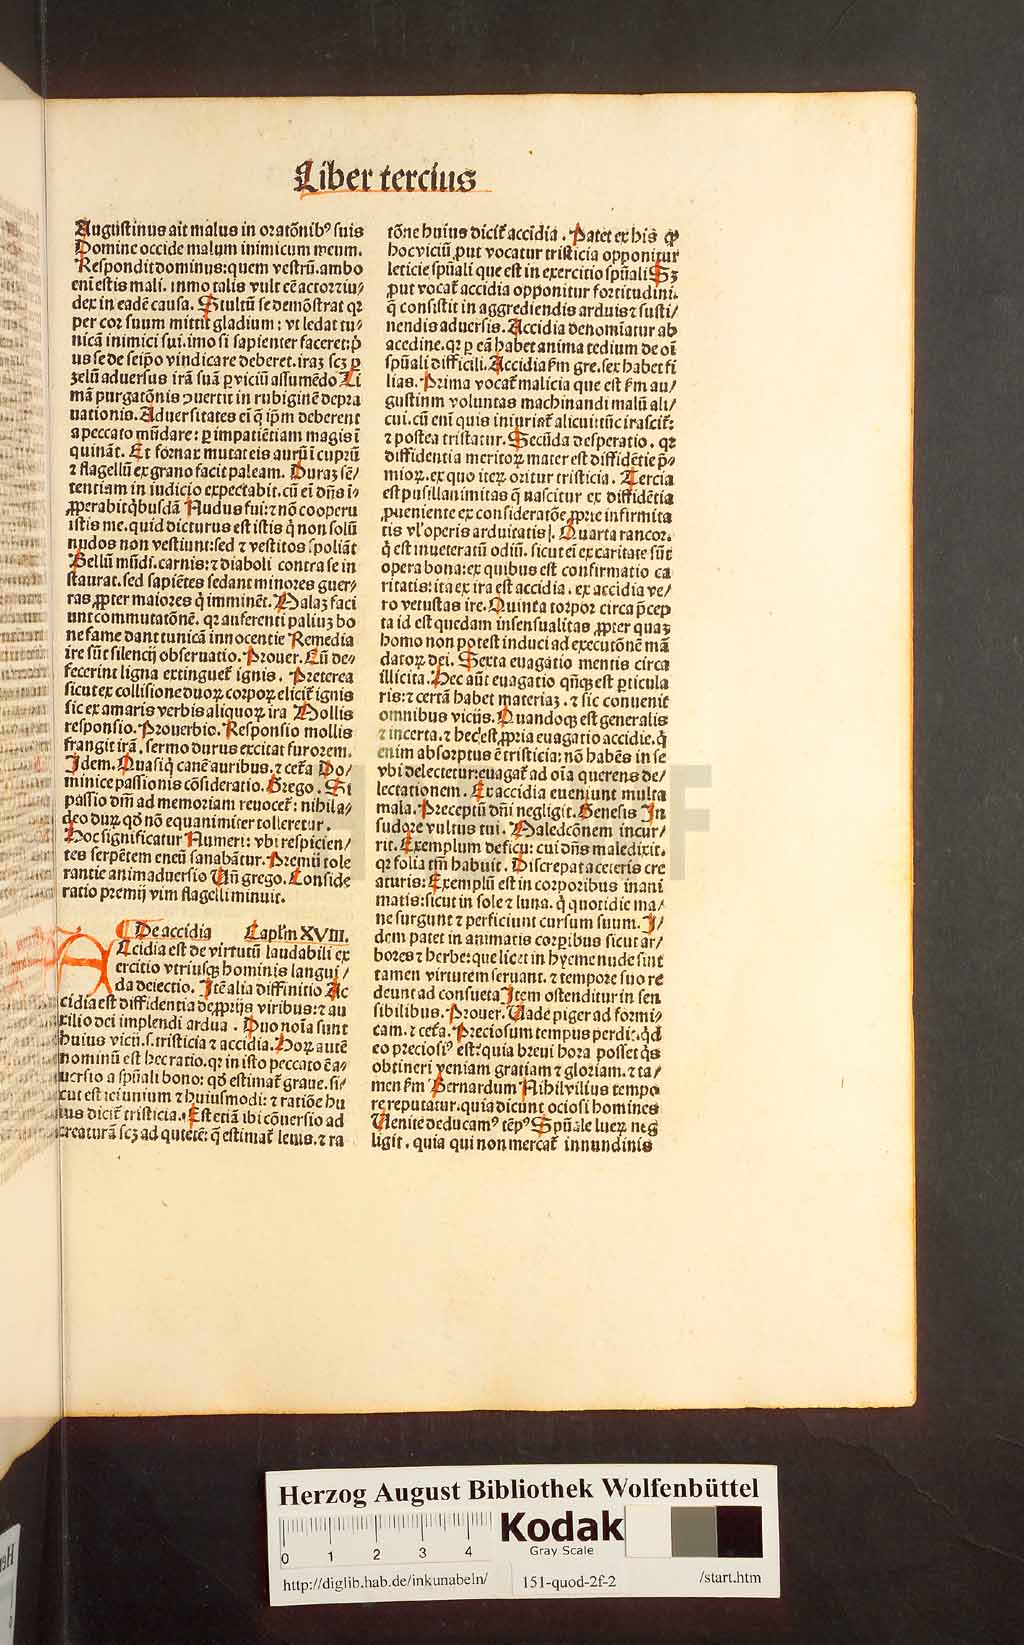 Liber tercius
Augustinus ait malus in oratōnibꝰ suis
Domine occide malum inimicum meum.
Respondit dominus: quem vestrū. ambo
eni estis mali. inmo talis vult eē actor ⁊ iu/
dex in eadē causa. Stultū se demōstrat qꝛ
per cor suum mittit gladium: vt ledat tu/
nicā inimici sui. imo si sapienter faceret: p̄
us se de seip̄o vindicare deberet. iraꝫ scꝫ ꝑ
ꝫelū aduersus irā suā ꝑ viciū assumēdo Li
mā purgatōnis ꝯuertit in rubiginē depra
uationis. Aduersitates eī q̄ ip̄m deberent
a peccato mūdare: ꝑ impatiētiam magis ī
quināt. Et fornax mutat eis aurū ī cuprū
⁊ flagellū ex grano facit paleam. Duraꝫ sē/
tentiam in iudicio expectabit. cū eī dn̄s ī/
ꝓperabit q̇busdā Nudus fui: ⁊ nō cooperu
istis me. quid dicturus est istis q̇ non solū
nudos non vestiunt: sed ⁊ vestitos spoliāt
Bellū mūdi. carnis: ⁊ diaboli contra se in
staurat. sed sapiētes sedant minores guer/
ras ꝓpter maiores q̇ imminēt. Malaꝫ faci
unt commutatōnē. qꝛ auferenti palium bo
ne fame dant tunicā innocentie Remedia
ire sūt silencij obseruatio. Prouer. Cū de/
fecerint ligna extinguet̄ ignis. Preterea
sicut ex collisione duoꝝ corpoꝝ elicit̄ ignis
sic ex amaris verbis aliquoꝝ ira Mollis
responsio. Prouerbio. Responsio mollis
frangit irā. sermo durus excitat furorem.
Idem. Quasi q̇ canē auribus. ⁊ cet̄a Do/
minice passionis cōsideratio. Grego. Si
passio dn̄i ad memoriam reuocet̄: nihil a/
deo duꝝ qd̄ nō equanimiter tolleretur.
Hoc significatur Numeri: vbi respicien/
tes serpētem eneū sanabātur. Premij tole
rantie animaduersio Vn̄ grego. Conside
ratio premij vim flagelli minuit.
De accidia Caplm XVIII.
Acidia est de virtutū laudabili ex
ercitio vtriusqꝫ hominis langui/
da deiectio. Itē alia diffinitio Ac
cidia est diffidentia de ꝓprijs viribus: ⁊ au
xilio dei implendi ardua. Duo noīa sunt
huius vicij. s. tristicia ⁊ accidia. Hoꝝ autē
nominū est hec ratio. qꝛ in isto peccato ē a/
uersio a spūali bono: qd̄ estimat̄ graue. si/
cut est ieiunium ⁊ huiusmodi: ⁊ ratiōe hu
ius dicit̄ tristicia. Est etiā ibi cōuersio ad
creaturā scꝫ ad quietē: q̄ estimat̄ leuis. ⁊ ra
tōne huius dicit̄ accidia. Patet ex his ꝙ
hoc viciū ꝓut vocatur tristicia opponitur
leticie spūali que est in exercitio spūali Sꝫ
ꝓut vocat̄ accidia opponitur fortitudini.
q̄ consistit in aggrediendis arduis ⁊ susti/
nendis aduersis. Accidia denomiatur ab
acedine. qꝛ ꝑ eā habet anima tedium de oī
spūali difficili. Accidia ẜm gre. sex habet fi
lias. Prima vocat̄ malicia que est ẜm au/
gustinm voluntas machinandi malū ali/
cui. cū enī quis iniuriat̄ alicui: tūc irascit̄:
⁊ postea tristatur. Secūda desperatio. qꝛ
diffidentia meritoꝝ mater est diffidētie p̄/
mioꝝ. ex quo iteꝝ oritur tristicia. Tercia
est pusillanimitas q̄ nascitur ex diffidētia
ꝓueniente ex consideratōe ꝓprie infirmita
tis vl' operis arduitatis. Quarta rancor.
q̇ est inueteratū odiū. sicut eī ex caritate sūt
opera bona: ex quibus est confirmatio ca
ritatis: ita ex ira est accidia. ex accidia ve/
ro vetustas ire. Quinta torpor circa p̄cep
ta id est quedam insensualitas ꝓpter quaꝫ
homo non potest induci ad executōnē mā
datoꝝ dei. Sexta euagatio mentis circa
illicita. Hec aūt euagatio qn̄qꝫ est ꝑticula
ris: ⁊ certā habet materiaꝫ. ⁊ sic conuenit
omnibus vicijs. Quandoqꝫ est generalis
⁊ incerta. ⁊ hec est ꝓpria euagatio accidie. q̇
enim absorptus ē tristicia: nō habēs in se
vbi delectetur: euagat̄ ad oīa querens de/
lectationem. Ex accidia eueniunt multa
mala. Preceptū dn̄i negligit. Genesis In
sudore vultus tui. Maledcōnem incur/
rit. Exemplum de ficu: cui dn̄s maledixit.
qꝛ folia tm̄ habuit. Discrepat a ceteris cre
aturis: Exemplū est in corporibus inani
matis: sicut in sole ⁊ luna. q̇ quotidie ma/
ne surgunt ⁊ perficiunt cursum suum. I/
dem patet in animatis corꝑibus sicut ar/
bores ⁊ herbe: que licet in hyeme nude sint
tamen virtutem seruant. ⁊ tempore suo re
deunt ad consueta Item ostenditur in sen
sibilibus. Prouer. Vade piger ad formi/
cam. ⁊ cet̄a. Preciosum tempus perdit: qd̄
eo preciosiꝰ est: quia breui hora posset q̇s
obtineri veniam gratiam ⁊ gloriam. ⁊ ta/
men ẜm Bernardum Nihil vilius tempo
re reputatur. quia dicunt ociosi homines
Venite deducamꝰ tēpꝰ Spūale lueꝝ neg
ligit. quia qui non mercat̄ innundinis
HAB WF
Herzog August Bibliothek Wolfenbüttel
0 1 2 3 4
Kodak
Gray Scale
http://diglib.hab.de/inkunabeln/ 151-quod-2f-2 /start.htm